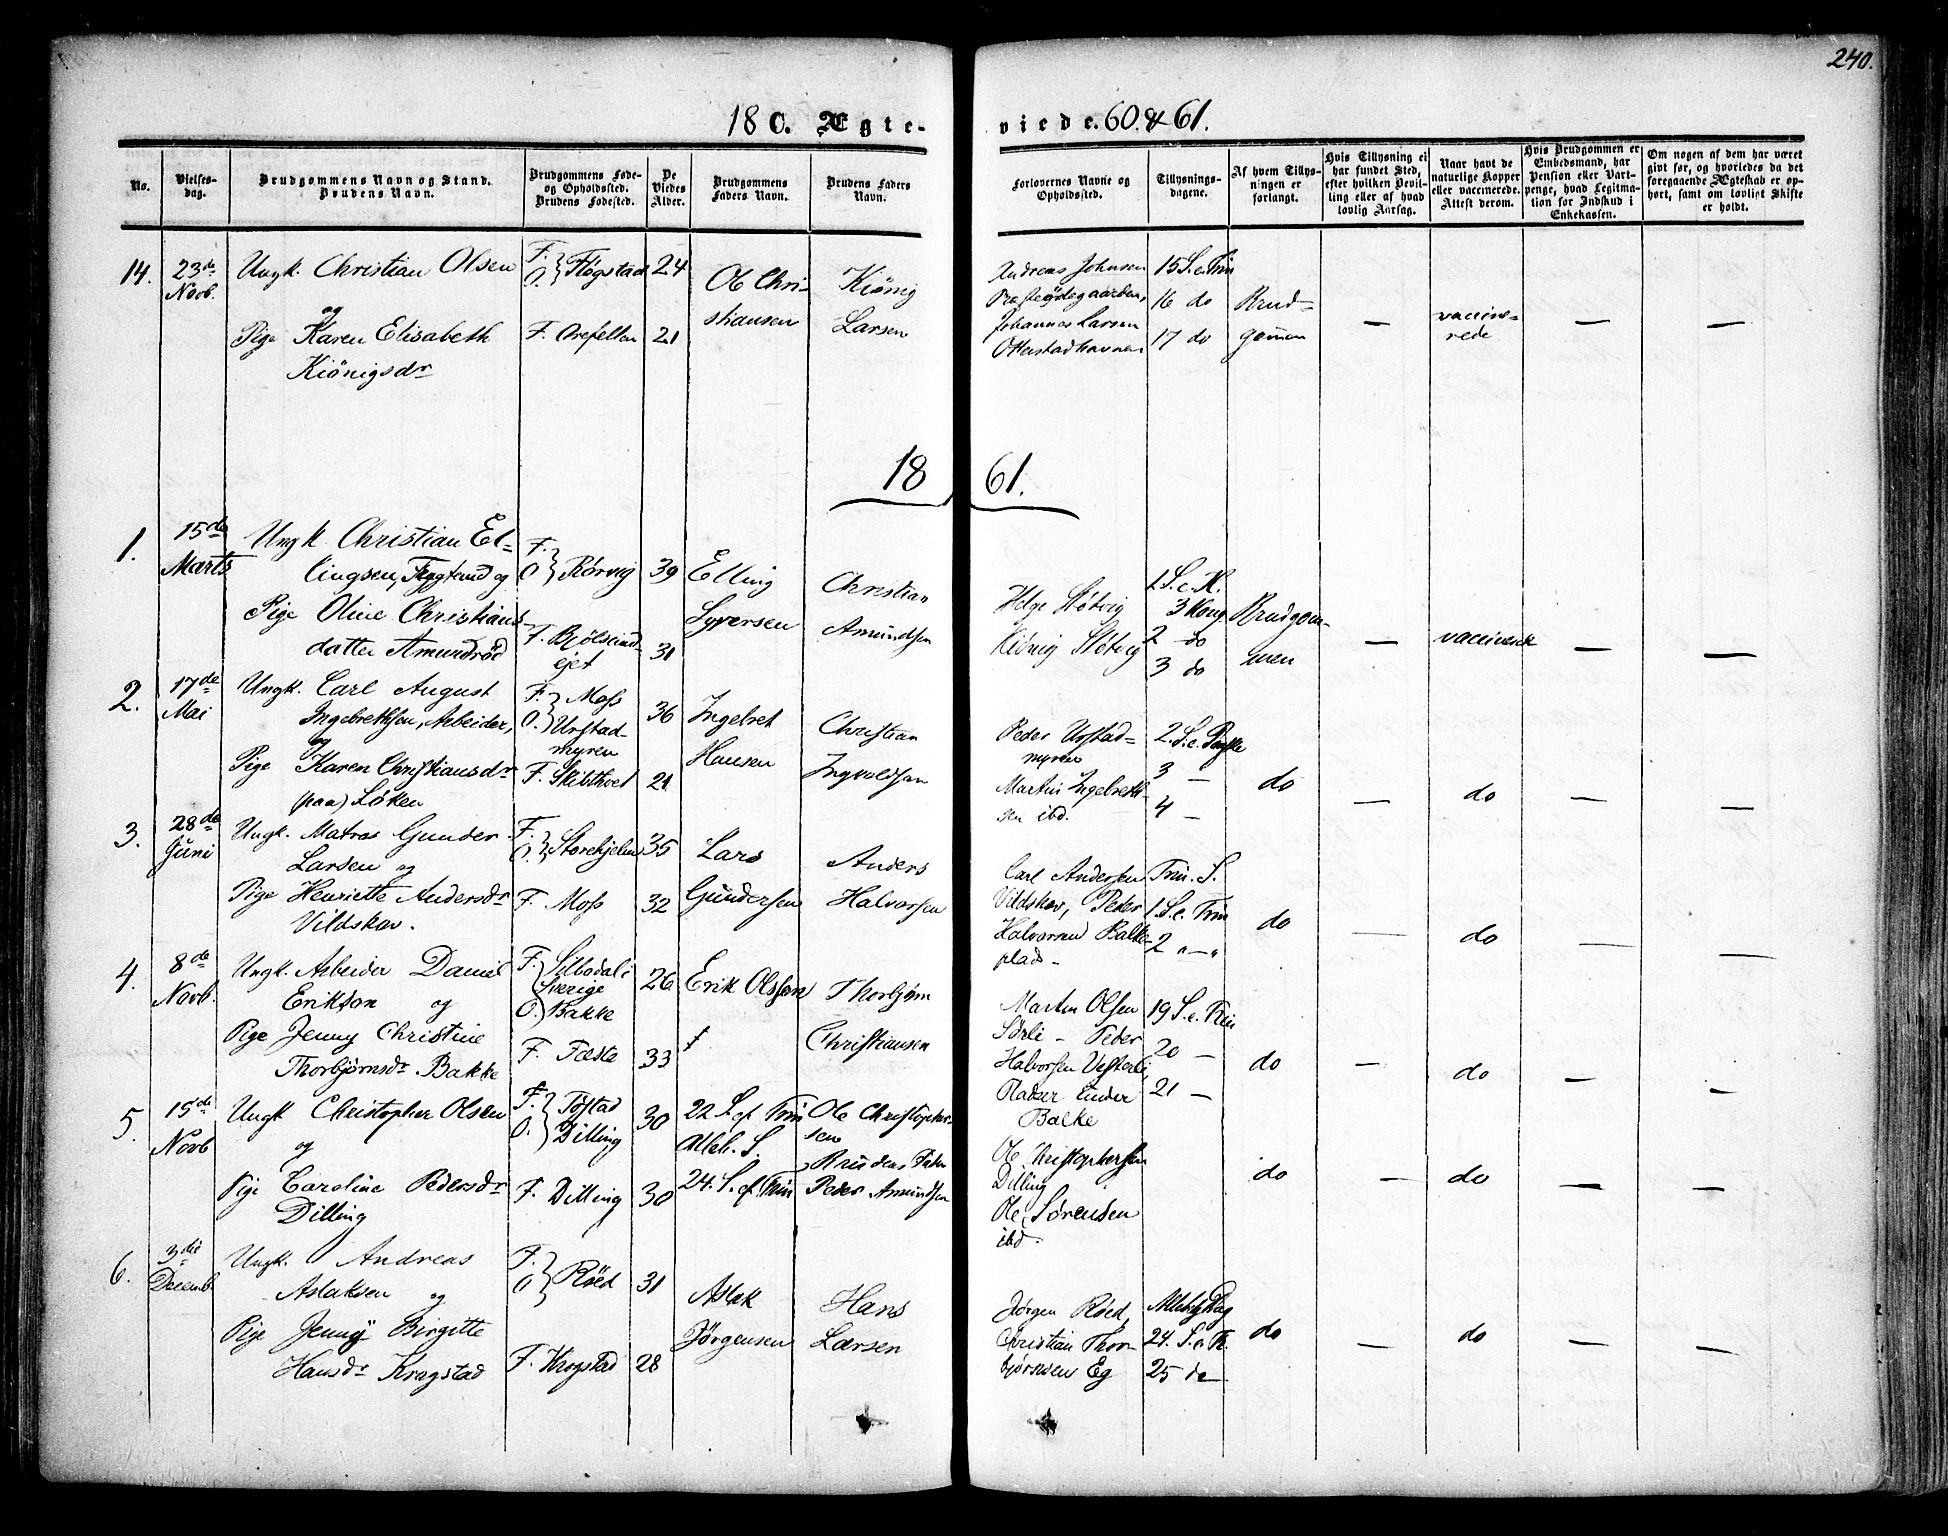 240.
18 0. Ægte-
viede. 60 & 61.
No.
Vielses-
dag.
Brudgommens Navn og Stand.
Brudens Navn.
Brudgommens Føde-
og Opholdssted.
Brudens Fødested.
De
Viedes
Alder.
Brudgommens
Faders Navn.
Brudens Faders
Navn.
Forlovernes Navne og
Opholdssted.
Tillysnings-
dagene.
Af hvem Tillys-
ningen er
forlangt.
Hvis Tillysning ei
har fundet Sted,
efter hvilken Bevil-
ling eller af hvad
lovlig Aarsag.
Naar havt de
naturlige Kopper
eller vaccinerede.
Attest derom.
Hvis Brudgommen er
Embedsmand, har
Pension eller Vart-
penge, hvad Legitma-
tion for Indskud i
Enkekassen.
Om nogen af dem har været
givt før, og hvorledes da det
foregaaende Ægteskab er op-
hørt, samt om lovligt Skifte
er holdt.
14. 23de Novb.
Ungk. Christian Olsen
og
Pige Karen Elisabeth
Kiönigsdr
F. O. Fløgstad 24
F. Orefelten 21
Ole Chri-
stiansen
Kiönig
Larsen
Andreas Johnsen
Præstegdegaarden,
Johannes Larsen
Otterstadhavnen
15 S. e. Trin
16 do
17 do
Brud-
gommen
—
vaccine-
rede
—
—
18 61.
1. 15de Marts
Ungk. Christian El-
lingsen, Flygtend og
Pige Oline Christians-
datter Amundröd
F. O. Rørvig 39
F. Bjölsund-
ejet 31
Elling
Syversen
Christian
Amundsen
Helge Støtvig
Kiönig Støtvig
1. S. e. H.
3 Kong.
2 do
3 do
Brudgom-
men
—
vaccinerede
—
—
2. 17de Mai
Ungk. Carl August
Ingebrethsen, Arbeider,
og
Pige Karen Christiansdr
(paa) Løken
F. Moss
O. Urstad-
myren 36
F. Skibthvet 21
Ingebret
Hansen
Christian
Ingvoldsen
Peder Urstad-
myren
Martin Ingebreth-
sen ibd.
2. S. e. Paaske
3 —
4 —
do
—
do
—
—
3. 28de Juni
Ungk. Matras Gunder
Larsen og
Pige Henriette Andersdr
Vildskov.
F. O. Storehjelm 35
F. Moss 32
Lars
Gundersen
Anders
Halvorsen
Carl Andersen
Vildskov, Peder
Halvorsen Balke-
plads -
Trin. S.
1. S. e. Trin
2 „ — „
do
—
do
—
—
4. 8de Novb.
Ungk. Arbeider Daniel
Erikson og
Pige Jenny Christine
Thorbjørnsdr Bakke
F. Sillbodal i
Sverige 26
O. Bakke
F. Fæste 33
Erik Olsson
†
Thorbjørn
Christiansen
Martin Olsen
Sørli - Peder
Halvorsen Vesterli,
Pladser under
Balke
19 S. e. Trin
20 —
21 —
do
—
do
—
—
5. 15de Novb
Ungk Christopher Olsen
og
Pige Caroline Pedersdr
Dilling
F. Tøstad
O. Dilling 30
F. Dilling 30
22 S. ef Trin
Alleh. S.
24. S. ef Trin
Ole Christopher-
sen
Brudens Fader
Peder Amundsen
Ole Christophersen
Dilling
Ole Sørensen
ibd.
do
—
do
—
—
6. 3die Decemb.
Ungk. Andreas
Aslaksen og
Pige Jenny Birgitte
Hansdr Kragstad
F. O. Röed 31
F. Krogstad 28
Aslak
Jörgensen
Hans
Larsen
Jørgen Röed,
Christian Thor-
bjørnsen Eg
Allehlg Dag
24. S. e. Tr.
25 do
do
—
do
—
—